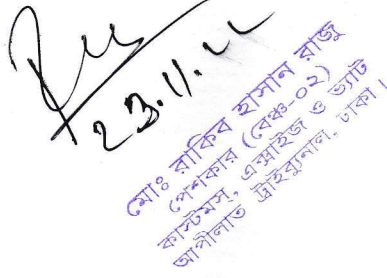 23.11.22
মোঃ রাকিব হাসান রাজু
পেশকার (বেঞ্চ-০২)
কাস্টমস, এক্সাইজ ও ভ্যাট
আপীলাত ট্রাইব্যুনাল, ঢাকা।